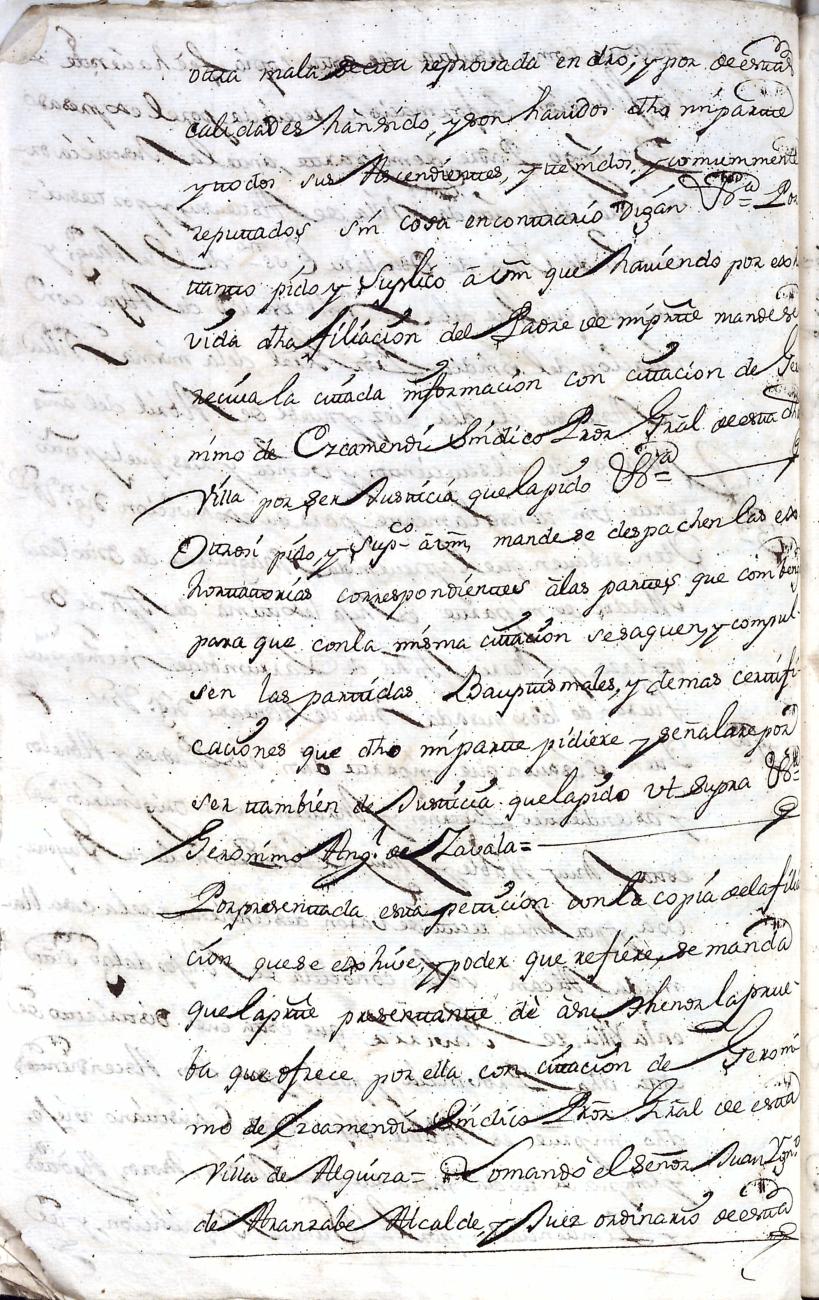 otra mala secta reprovada en dro; y por de estas
calidades hàn sido, y son havidos dho mi parte
y todos sus Ascendientes, y tenidos, y comummente
reputados sin cosa en contrario Dizàn Vª= Por
tanto pido y Suplico à Vm que haviendo por exhi
vida dha filiacion del Padre de mi prte mande se
reciva la citada informacion con citacion de Gero
nimo de Ezcamendi Sindico Pror Gral de esta dha
Villa por ser Justicia que la pido Vª=
Otrosi pido, y Supco à Vm, mande se despachen las ex
hortatorias correspondientes à las partes que combeng
para que con la misma citacion se saquen, y compul-
sen las partidas Bauptismales, y demas certifi
caciones que dho mi parte pidiere y señalare por
ser tambien de Justicia que la pido Vt Supra
Geronimo Angl de Zavala=
Por presentada esta peticion con la copia de la filia
cion que se exhive, y poder que refiere, se manda
que la prte presentante dè à su thenor la prue-
ba que ofrece por ella con citacion de Geroni-
mo de Ezcamendi Sindico Pror Gral de esta
Villa de Alquiza= Lo mandò el Señor Juan Ygno
de Aranzabe Alcalde, y Juez ordinario de esta